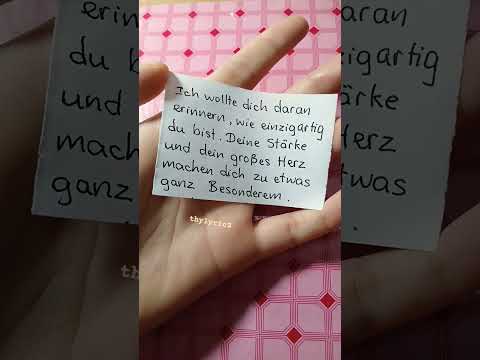 Ich wollte dich daran
erinnern, wie einzigartig
du bist. Deine Stärke
und dein großes Herz
machen dich zu etwas
ganz Besonderem.
thylyric2